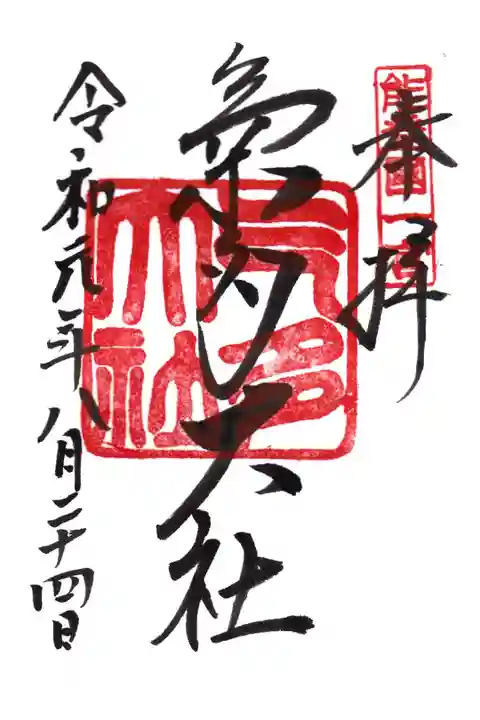 奉拝
能登國一宮
氣多大社
氣多大社
令和元年八月二十四日